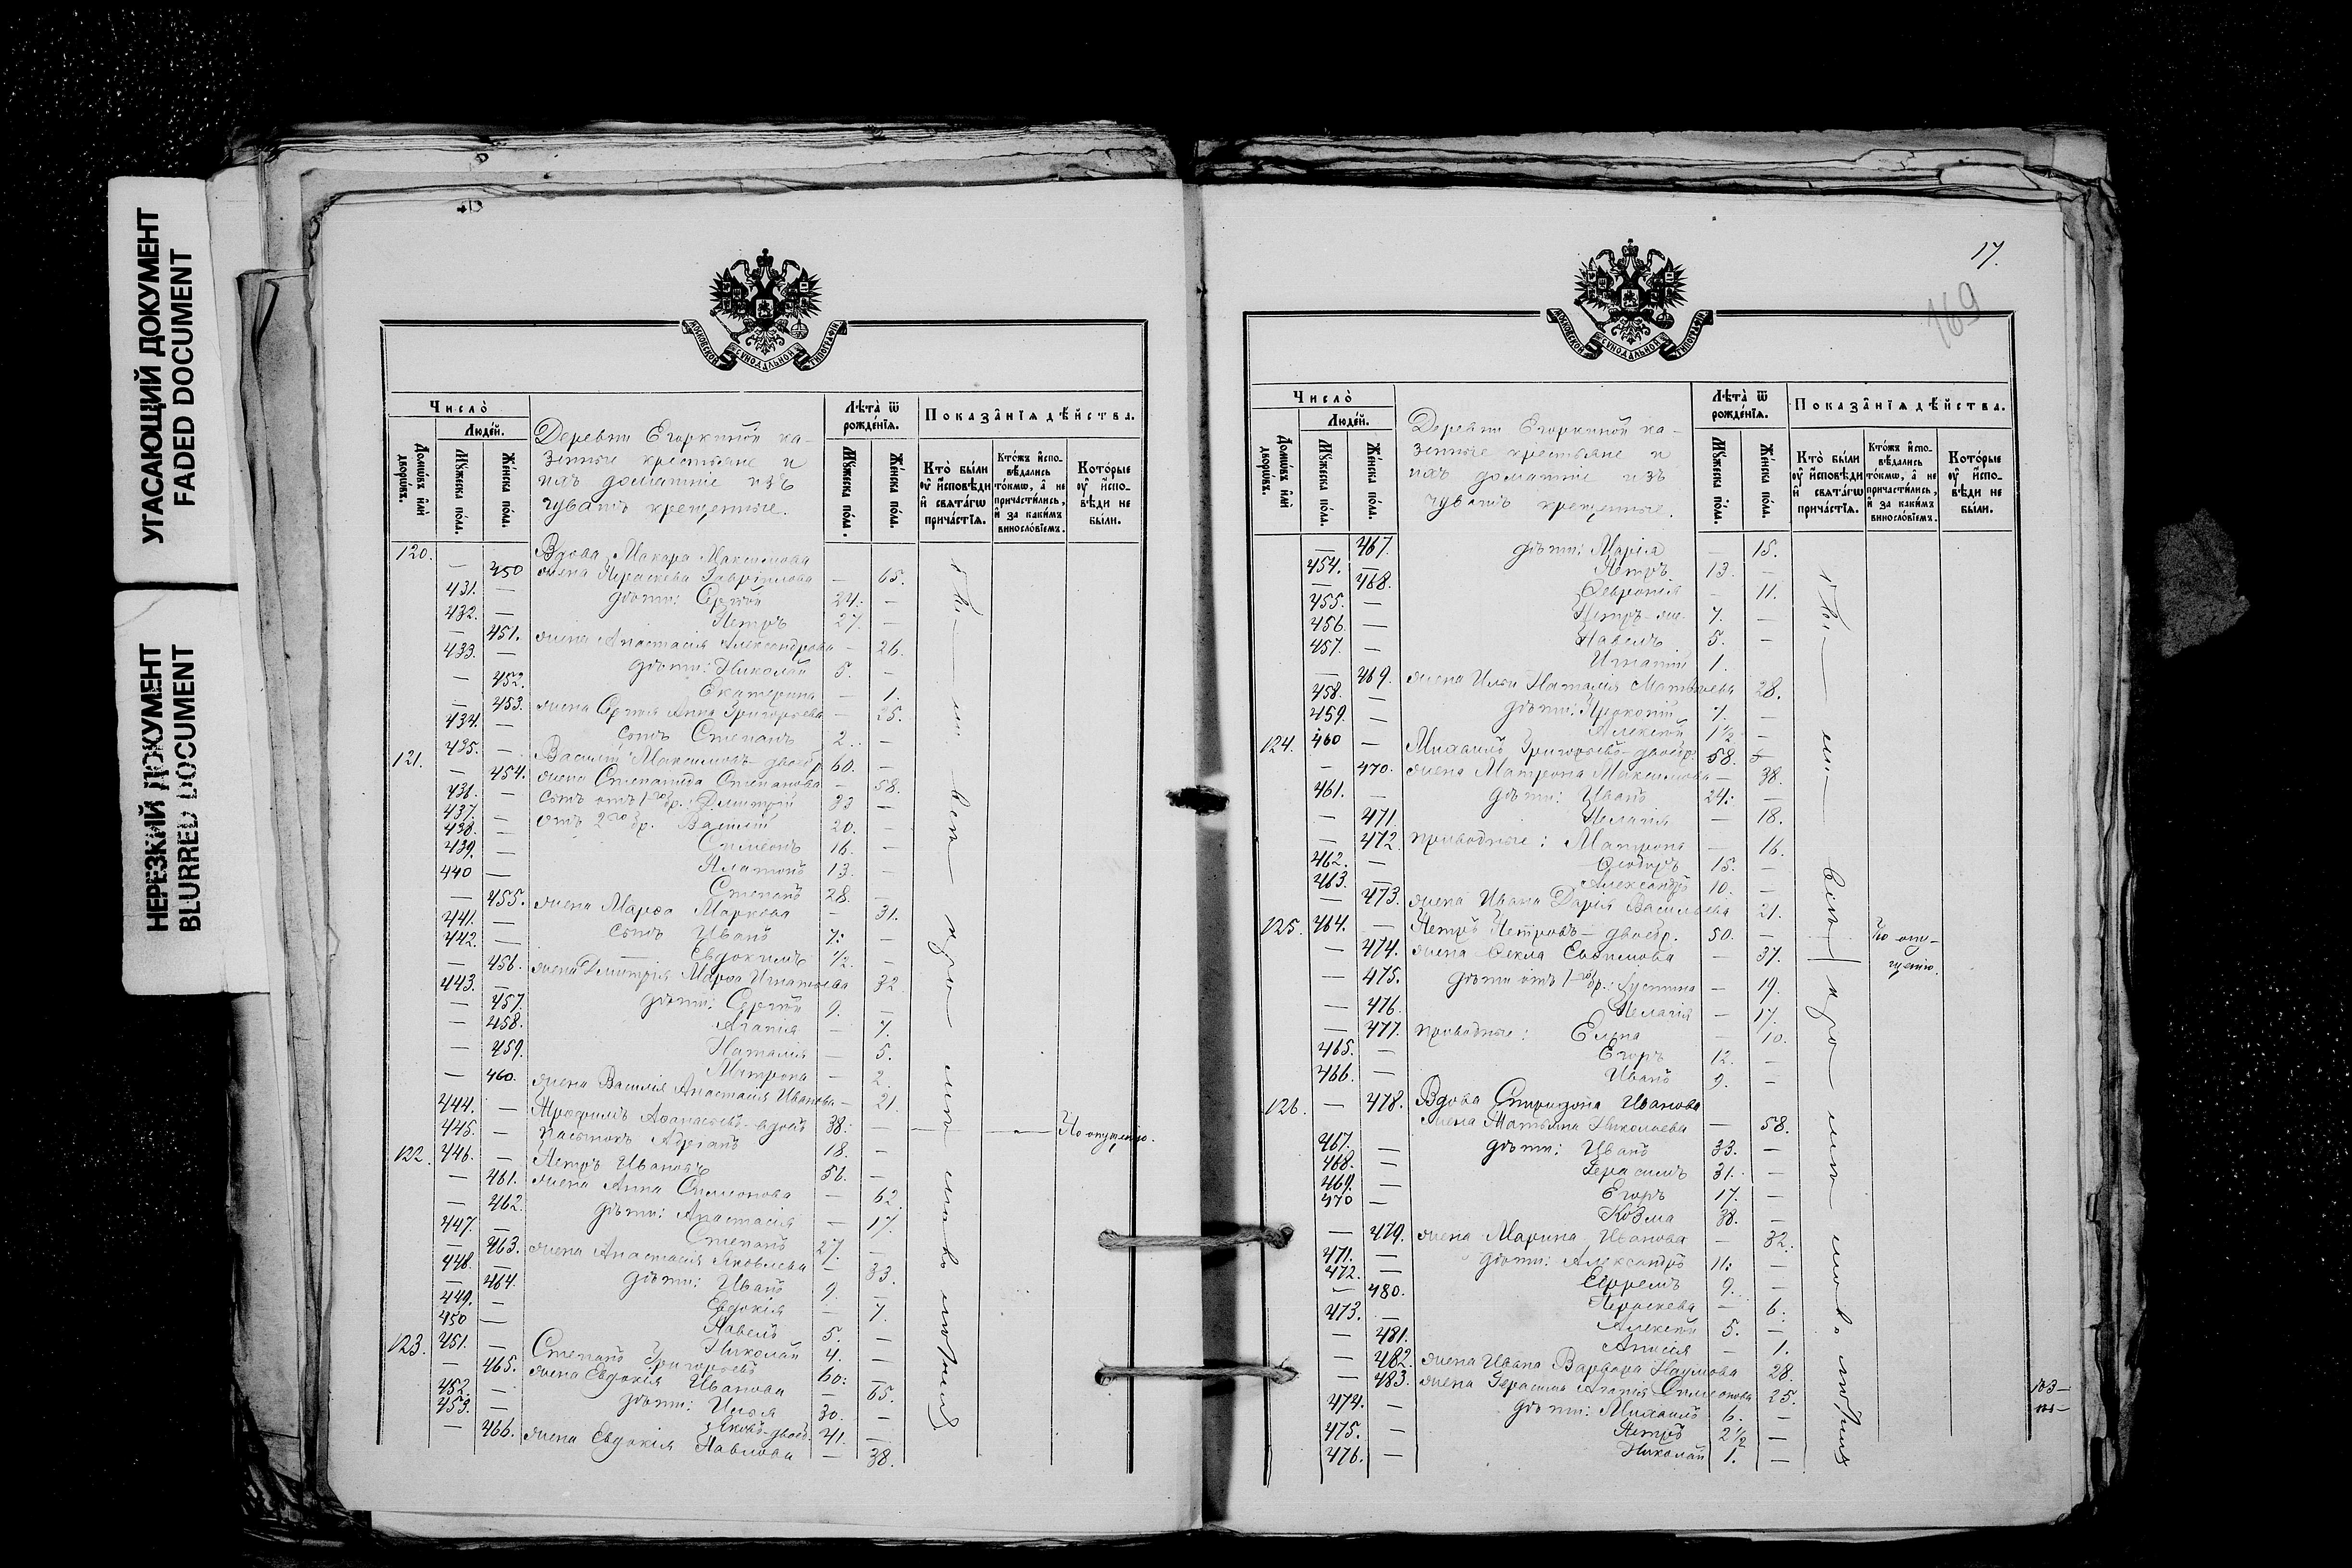 УГАСАЮЩИЙ ДОКУМЕНТ
FADED DOCUMENT
НЕРЕЗКИЙ ДОКУМЕНТ
BLURRED DOCUMENT
МОСКОВСКОЙ СѴНОДАЛЬНОЙ ТИПОГРАФІИ
Число̀
Людéй.
Домѡ́въ и҆лѝ дворѡ́въ.
Мꙋ́жеска пóла.
Жéнска пóла.
Деревни Егоркиной ка-
зенные крестьяне и
ихъ домашніе изъ
чувашъ крещенные.
Лѣта̀ ѿ рождéнїѧ.
Мꙋ́жеска пóла.
Жéнска пóла.
Показа̑нїѧ дѣ́йства.
Кто̀ бы́ли ᲂу҆ и҆́сповѣди и҆ свѧта́гѡ прича́стїѧ.
Кто́жъ и҆спо-вѣ́дались то́кмѡ, а҆ не причасти́лись, и҆ за каки́мъ винослóвїемъ.
Кото́рые ᲂу҆ и҆́спо-вѣди не бы́ли.
120. Вдова Макара Максимова
— 450 жена Параскева Гавріилова — 65.
431. — дѣти: Сергѣй 24. —
432. — Петръ 27. —
— 451. жена Анастасія Александрова — 26.
433. — дѣти: Николай 5. —
— 452. Екатерина — 1.
— 453. жена Сергѣя Анна Григорьева — 25.
434. — сынъ Степанъ 2. —
121. 435. — Василій Максимовъ - двоебр. 60. —
— 454. жена Степанида Степанова — 58.
436. — сынъ отъ 1го бр.: Дмитрій 33 —
437. — отъ 2го бр. Василій 20. —
438. — Симеонъ 16. —
439. — Платонъ 13. —
440 — Степанъ 28. —
— 455. жена Марѳа Маркова — 31.
441. — сынъ Иванъ 7. —
442. — Евдокимъ 1/2. —
— 456. жена Дмитрія Марѳа Игнатьева 32
443. — дѣти: Сергѣй 9. —
— 457. Агапія — 7.
— 458. Наталія — 5.
— 459. Матрона — 2.
— 460. жена Василія Анастасія Иванова — 21.
444. — Трофимъ Аѳанасьевъ - вдовъ 38. — По опущенію.
445. — пасынокъ Адріанъ 18. —
122. 446. — Петръ Ивановъ 56. —
— 461. жена Анна Симеонова — 62.
— 462. дѣти: Анастасія — 17.
447. — Степанъ 27. —
— 463. жена Анастасія Яковлева — 33.
448. — дѣти: Иванъ 9. —
— 464. Евдокія — 7.
449. — Павелъ 5. —
450 — Николай 4. —
123. 451. — Степанъ Григорьевъ 60. —
— 465. жена Евдокія Иванова — 65.
452. — дѣти: Илья 30. —
453. — Яковъ - двоеб. 41. —
— 466. жена Евдокія Павлова — 38.
17.
169
МОСКОВСКОЙ СѴНОДАЛЬНОЙ ТИПОГРАФІИ
Число̀
Людéй.
Домѡ́въ и҆лѝ дворѡ́въ.
Мꙋ́жеска пóла.
Жéнска пóла.
Деревни Егоркиной ка-
зенные крестьяне и
ихъ домашніе изъ
чувашъ крещенные.
Лѣта̀ ѿ рождéнїѧ.
Мꙋ́жеска пóла.
Жéнска пóла.
Показа̑нїѧ дѣ́йства.
Кто̀ бы́ли ᲂу҆ и҆́сповѣди и҆ свѧта́гѡ прича́стїѧ.
Кто́жъ и҆спо-вѣ́дались то́кмѡ, а҆ не причасти́лись, и҆ за каки́мъ винослóвїемъ.
Кото́рые ᲂу҆ и҆́спо-вѣди не бы́ли.
— 467. дѣти: Марія — 15.
454. — Петръ 13. —
— 468. Февронія — 11.
455. — Петръ - мл. 7. —
456. — Павелъ 5. —
457. — Игнатій 1.
— 469. жена Ильи Наталія Матвѣева 28.
458. — дѣти: Прокопій 7. —
459. — Алексѣй 1 1/2 —
124. 460 — Михаилъ Григорьевъ - двоебр. 58.
— 470. жена Матрона Максимова — 38.
461. — дѣти: Иванъ 24. —
— 471. Пелагія — 18.
— 472. приводные: Матрона — 16.
462. — Ѳеодоръ 15. —
463. — Александръ 10. —
— 473. жена Ивана Дарія Васильева 21.
125. 464. — Петръ Петровъ - двоебр. 50. — По опу-
щенію.
— 474. жена Ѳекла Евѳимова — 37.
— 475. дѣти отъ 1го бр.: Іустина — 19.
— 476. Пелагія — 17.
— 477. приводные: Елена — 10.
465. — Егоръ 12. —
466. — Иванъ 9. —
126. — 478. Вдова Спиридона Иванова
жена Татьяна Николаева — 58.
467. — дѣти: Иванъ 33. —
468. — Герасимъ 31. —
469. — Егоръ 17. —
470 — Козма 38. —
— 479. жена Марина Иванова — 32.
471. — дѣти: Александръ 11. —
472. — Ефремъ 9. —
— 480. Параскева — 6.
473. — Алексѣй 5. —
— 481. Анисія — 1.
— 482. жена Ивана Варвара Наумова 28.
— 483. жена Герасима Агапія Симеонова 25.
474. — дѣти: Михаилъ 6. —
475. — Петръ 2 1/2 —
476. — Николай 1. —
103 —